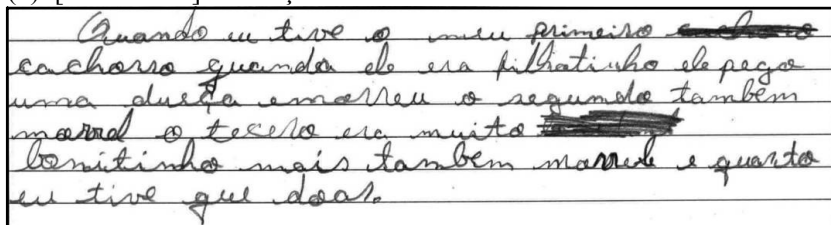 Quando eu tive o meu primeiro
cachorro quando ele era filhotinho ele pego
uma dueça emorreu o segundo também
morrel o tecero era muito
bonitinho mais também morrel e quarto
eu tive que doar.